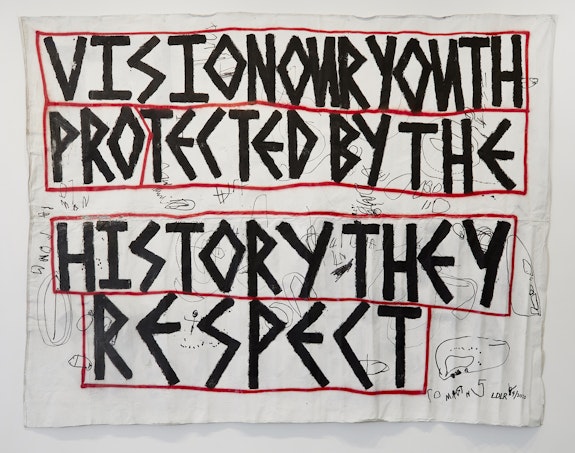 VISION OUR YOUTH
PROTECTED BY THE
HISTORY THEY
RESPECT
LDLR